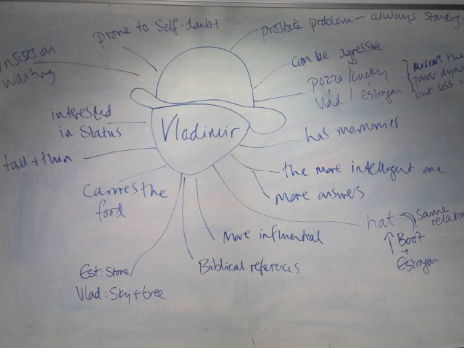 prone to Self-doubt
prostate problem – always standing
insists on
waiting
can be aggressive
pozzo/Lucky
Vlad/Estragon
mirrors the
but less
interested
in Status
Vladimir
has memories
tall + thin
Carries the
food
the more intelligent one
more answers
hat
Same
Boot
+
Estragon
More influential
Biblical references
Est: Stone
Vlad: Sky + tree